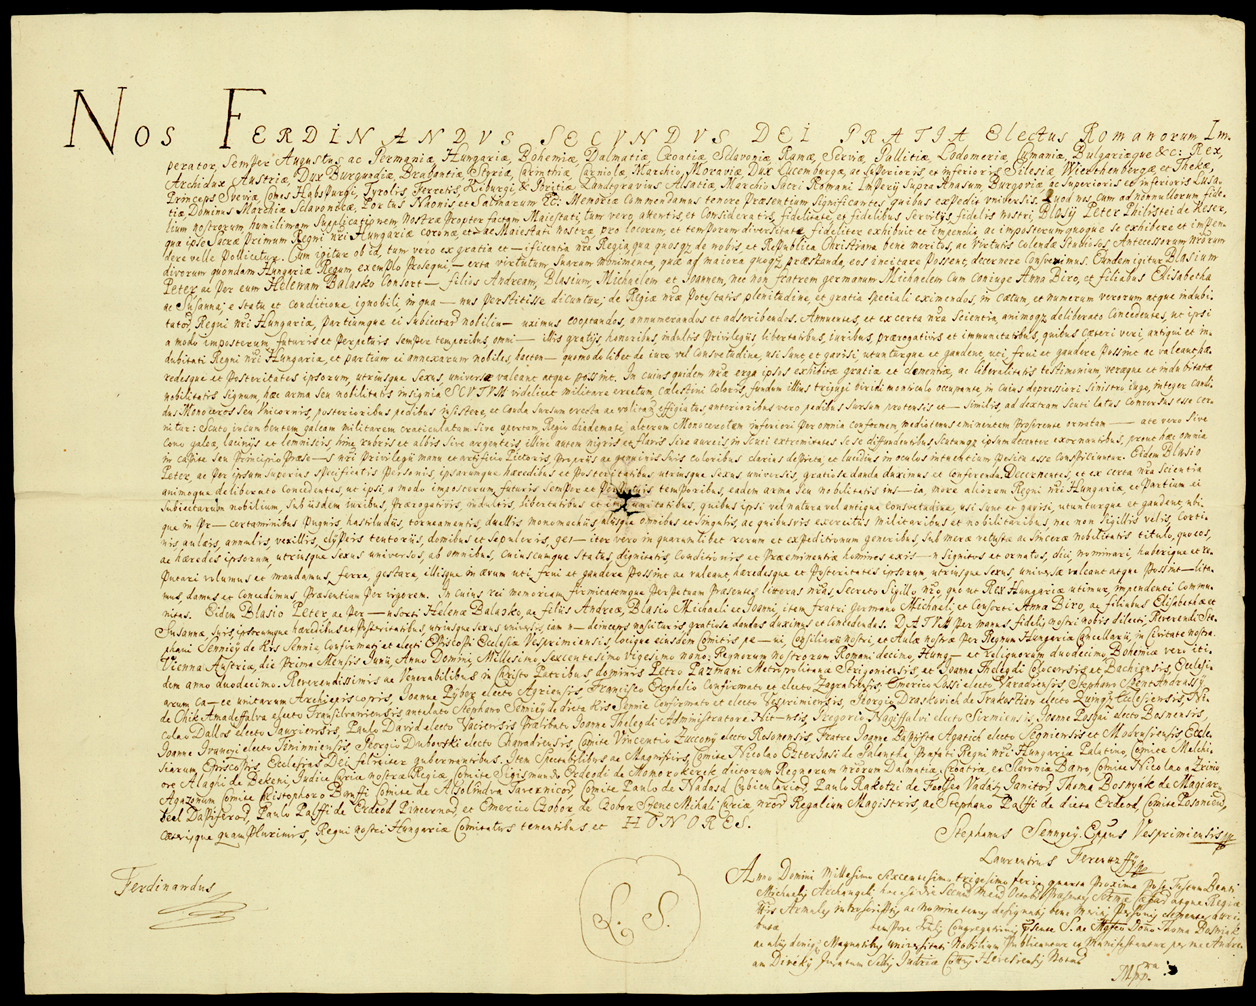 NOS FERDINANDVS SECVNDVS DEI GRATIA Electus Romanorum Im-
perator, Semper Augustus, ac Germaniæ, Hungariæ, Bohemiæ, Dalmatiæ, Croatiæ Sclavoniæ, Ramæ, Serviæ, Gallitiæ, Lodomeriæ, Cumaniæ, Bulgariæque &c: Rex,
Archidux Austriæ, Dux Burgundiæ, Brabantiæ, Styriæ, Carinthiæ, Carniolæ, Marchio Moraviæ, Dux Lucemburgæ, ac Superioris et inferioris Silesiæ, Wierthenbergæ, et Thekæ,
Princeps Sveviæ, Comes Habspurgi, Tyrolis, Ferretis, Kiburgi, & Goritiæ Landtgravius Alsatiæ, Marchio Sacri Romani Imperÿ Supra Anasum, Burgoviæ ac Superioris et inferioris Lusa-
tiæ Dominus Marchiæ Sclavonicæ, Portus Naonis et Salinarum &c. Memoriæ Commendamus tenore Præsentium Significantes, quibus expedit vniversis. Quod nos, cum ad nonnullorum fide-
lium nostrorum humilimam Supplicationem Nostræ Propter factam Maiestati, tum vero, attentis, et Consideratis, fidelitate, et fidelibus Servitÿs, fidelis nostri, Blasÿ Peter
qua ipse Sacræ Primum Regni nr̃i Hungariæ coronæ, et Maiestati nostræ pro locorum, et temporum diversitate, fideliter exhibuit et impendit, ac imposterum quoque se exhibere et impen-
dere velle Pollicetur. Cum igitur ob id, tum vero ex gratia et — ificentia nr̃a Regia, qua quosqz de nobis et Republica Christiana bene meritos, ac Virtutis Colendæ Studiosos Antecessorum Nr̃orum
divorum quondam Hungariæ Regum exemplo Prosequi, — certa virtutum Suarum Monimenta, quæ ad maiora quæqz Præstanda, eos incitare Possent, decernere Consvevimus. Eundem igitur Blasium
Peter, ac Per eum Helenam Balasko Consort — filios Andream, Blasium, Michaelem et Joannem, nec non fratrem germanum Michaelem Cum Coniuge Anna Biro, et filiabus Elisabetha
ac Susanna, e Statu et Conditione ignobili, in qua — nus Perstitisse dicuntur, de Regiæ nr̃æ Potestatis plenitudine, et gratia Speciali eximendos, in cætum, et numerum verorum atque indubi-
tator. Regni nr̃i Hungariæ, Partiumque ei Subiectar. nobiliu — uximus Cooptandos, annumerandos et adscribendos. Annuentes, et ex certa nr̃a Scientia, animoqz deliberato Concedentes, ut ipsi
a modo imposterum futuris et Perpetuis Semper temporibus, omni — illis gratÿs, honoribus, indultis Privilegÿs, libertatibus, iuribus, prærogativis et immunitatibus, quibus cæteri veri, antiqui et in-
dubitati Regni nr̃i Hungariæ, et partium ei annexarum nobiles, hacten — quomodolibet de iure vel Consvetudine, usi Sunt, et gavisi, utunturque et gaudent, uti, frui et gaudere Possint ac valeant, hæ-
redesque et Posteritates ipsorum, utriusque Sexus, universæ valeant atque possint. In cuius quidem nr̃æ erga ipsos exhibitæ gratiæ et clementiæ, ac liberalitatis testimonium, veraque et indubitatæ
nobilitatis Signum, hæc arma Seu nobilitatis insignia SCVTVM videlicet militare erectum, Cælestini Coloris, fundum illius trijugi viridi monticulo occupante, in cuius depressiori sinistro iugo, integer Candi-
dus Monoceros seu Vnicornis, posterioribus pedibus insistere, et Cauda Sursum erecta ac volitan — effigiatus, anterioribus vero pedibus Sursum protensis et — Similis, ad dextram Scuti latus Conversus esse cer-
nitur: Scuto incumbentem galeam militarem craticulatam Sive apertam, Regio diademate, alterum Monocerotem inferiori Per omnia Conformem, medio tenus eminentem Proferente ornatam — ate vero Sive
Cono galeæ, lacinÿs et lemniscis, hinc rubris et albis Sive argenteis illinc autem nigris et flavis Sive aureis, in Scuti extremitates Se se diffundentibus Scutumqz ipsum decenter exornantibus, prout hæc omnia
in capite Seu Principio Præse — s nr̃i Privilegÿ manu et artificio Pictoris Proprÿs ac genuinis Suis Coloribus clarius depicta, et lucidius in oculos intuentium posita esse Conspiciuntur. Eidem Blasio
Peter, ac Per ipsum Superius Specificatis Personis, ipsarumque hæredibus et Posteritatibus utriusque Sexus, universis, gratiose danda duximus et Conferenda. Decernentes, et ex certa nr̃a Scientia
animoque deliberato Concedentes, ut ipsi, a modo imposterum futuris Semper et Perpetuis temporibus, eadem arma Seu nobilitatis ins — ia, more aliorum Regni nr̃i Hungariæ, et Partium ei
Subiectarum nobilium, Sub iisdem iuribus, Prærogativis, indultis, libertatibus, et immunitatibus, quibus ipsi vel natura vel antiqua Consvetudine, usi Sunt et gavisi, utunturque et gaudent ubi-
que in Pr — Certaminibus Pugnis hastiludÿs, torneamentis, duellis, monomachÿs, alÿsque omnibus et Singulis, ac quibusvis exercitÿs militaribus et nobilitaribus, nec non Sigillis velis, Corti-
nis aulæis, annulis, vexillis, clÿpeis tentorÿs, domibus et Sepulcris, ge — iter vero in quarumlibet rerum et expeditionum generibus, Sub meræ vetustæ ac Sinceræ nobilitatis titulo, quo eos,
ac hæredes ipsorum, utriusque Sexus universos, ab omnibus, Cuiuscumque Status, dignitatis Conditionis et Præeminentiæ homines exis — nsignitos et ornatos, dici, nominari, haberique et re-
Putari volumus et mandamus, ferre, gestare, illisque in ævum uti frui et gaudere Possint ac valeant, hæredesque et Posteritates ipsorum, utriusque Sexus, universæ valeant atque Possint —
mus, damus et Concedimus Præsentium Per vigorem. In Cuius rei memoriam firmitatemque Perpetuam Præsentes literas nr̃as Secreto Sigillo nr̃o, quo ut Rex Hungariæ utimur, impendenti Commu-
nitas. Eidem Blasio Peter ac Per — Helenæ Balasko, ac filÿs Andreæ, Blasio Michaeli et Joanni, item fratri germano Michaeli, et Consorti Anna Biro, ac filiabus Elisabethæ et
Susannæ, Suis, ipsorumque hæredibus et Posteritatibus utriusque Sexus universis, — deinceps nascituris gratiose dandas duximus et Concedendas. DATVM Per manus fidelis nostri nobis dilecti, Reverendi Ste-
phani Senniey de Kis Sennie, Confirmati et electi Episcopi Ecclesiæ Vesprimiensis, locique eiusdem Comitis pe — ui, Consiliarÿ nostri et Aulæ nostræ Per Regnum Hungariæ Cancellarÿ, in Civitate nostra
Vienna Austriæ, die Prima Mensis Junÿ, Anno Domini Millesimo Sexcentesimo Vigesimo nono: Regnorum Nostrorum Romani decimo, Hung — et reliquorum duodecimo, Bohemiæ vero iti-
dem anno duodecimo. Reverendissimis ac Venerabilibus in Christo Patribus, dominis Petro Pazmani Metropolitanæ Strigoniensis, et Joanne Thelegdi Colocensis et Bachiensis, Ecclesi-
arum Ca — ce unitarum Archiepiscopis, Joanne Pÿber electo Agriensi, Francisco Erghelio Confirmato et electo Zagrabiensi, Emerico Lossi electo Varadiensis, Stephano Szent Andrassÿ
de Chik Amadefalva electo Transilvaniensis antelato Stephano Senniey de dicta Kis Sennie Confirmato et electo Vesprimiensis, Georgio Draskovich de Trakostian electo Quinqz Ecclesiensis, Ni-
colao Dallos electo Jauriensis, Paulo David electo Vaciensis Præfatibus Joanne Thelegdi Administratore Nit — nsis, Gregorio Nagÿfalvi electo Sirmiensis, Joanne Pospai electo Bosnensis,
Joanne Ivanczi electo Tininniensis, Georgio Dubovski electo Chanadiensis, Comite Vincentio Zuccony electo Rosonensis, Fratre Joanne Baptista Agatich electo Segniensis et Modrusiensis Eccle-
siarum Episcopis, Ecclesias Dei feliciter gubernantibus. Item Spectabilibus ac Magnificis, Comite Nicolao Ezterhasi de Galantha Præfati Regni nr̃i Hungariæ Palatino Comite Melchi-
ore Alaghi de Bekeni, Judice Curiæ nostræ Regiæ, Comite Sigismundo Erdeodi de Monorokerek dictorum Regnorum Nr̃orum Dalmatiæ, Croatiæ, et Slavoniæ Bano, Comite Nicolao a Zrinio
Agazonum Comite Christophoro Banffi Comite de Alsolindva Tavernicor. Comite Paulo de Nadasd Cubicularior. Paulo Rakotzi de Feolseo Vadasz Janitor. Thoma Bosnÿak de Magÿar
bel Dapiferor. Paulo Palffi de Erdeod Pincernar. et Emerico Czobor de Czobor Szent Mihali Curiæ nr̃or Regalium Magistris, ac Stephano Palffi de dicta Erdeod Comite Posoniens,
cæterisque quam Plurimis, Regni nostri Hungariæ Comitatus tenentibus et HONORES.
Stephanus Sennyey Eppus Vesprimiensis
Laurentius Ferentzffÿ
Ferdinandus
L. S.
Anno Domini Millesimo Sexcentesimo trigesimo feria quarta Proxima Post Festum Beati
Michaelis Archangeli, hoc est die Secund Mens Octobr
tempore Congregationis Thoma Bosniak
ac alÿs Magnatibus universitati Nobilium Publicantur et Manifestantur per me Andre-
am Notar
Mpp.